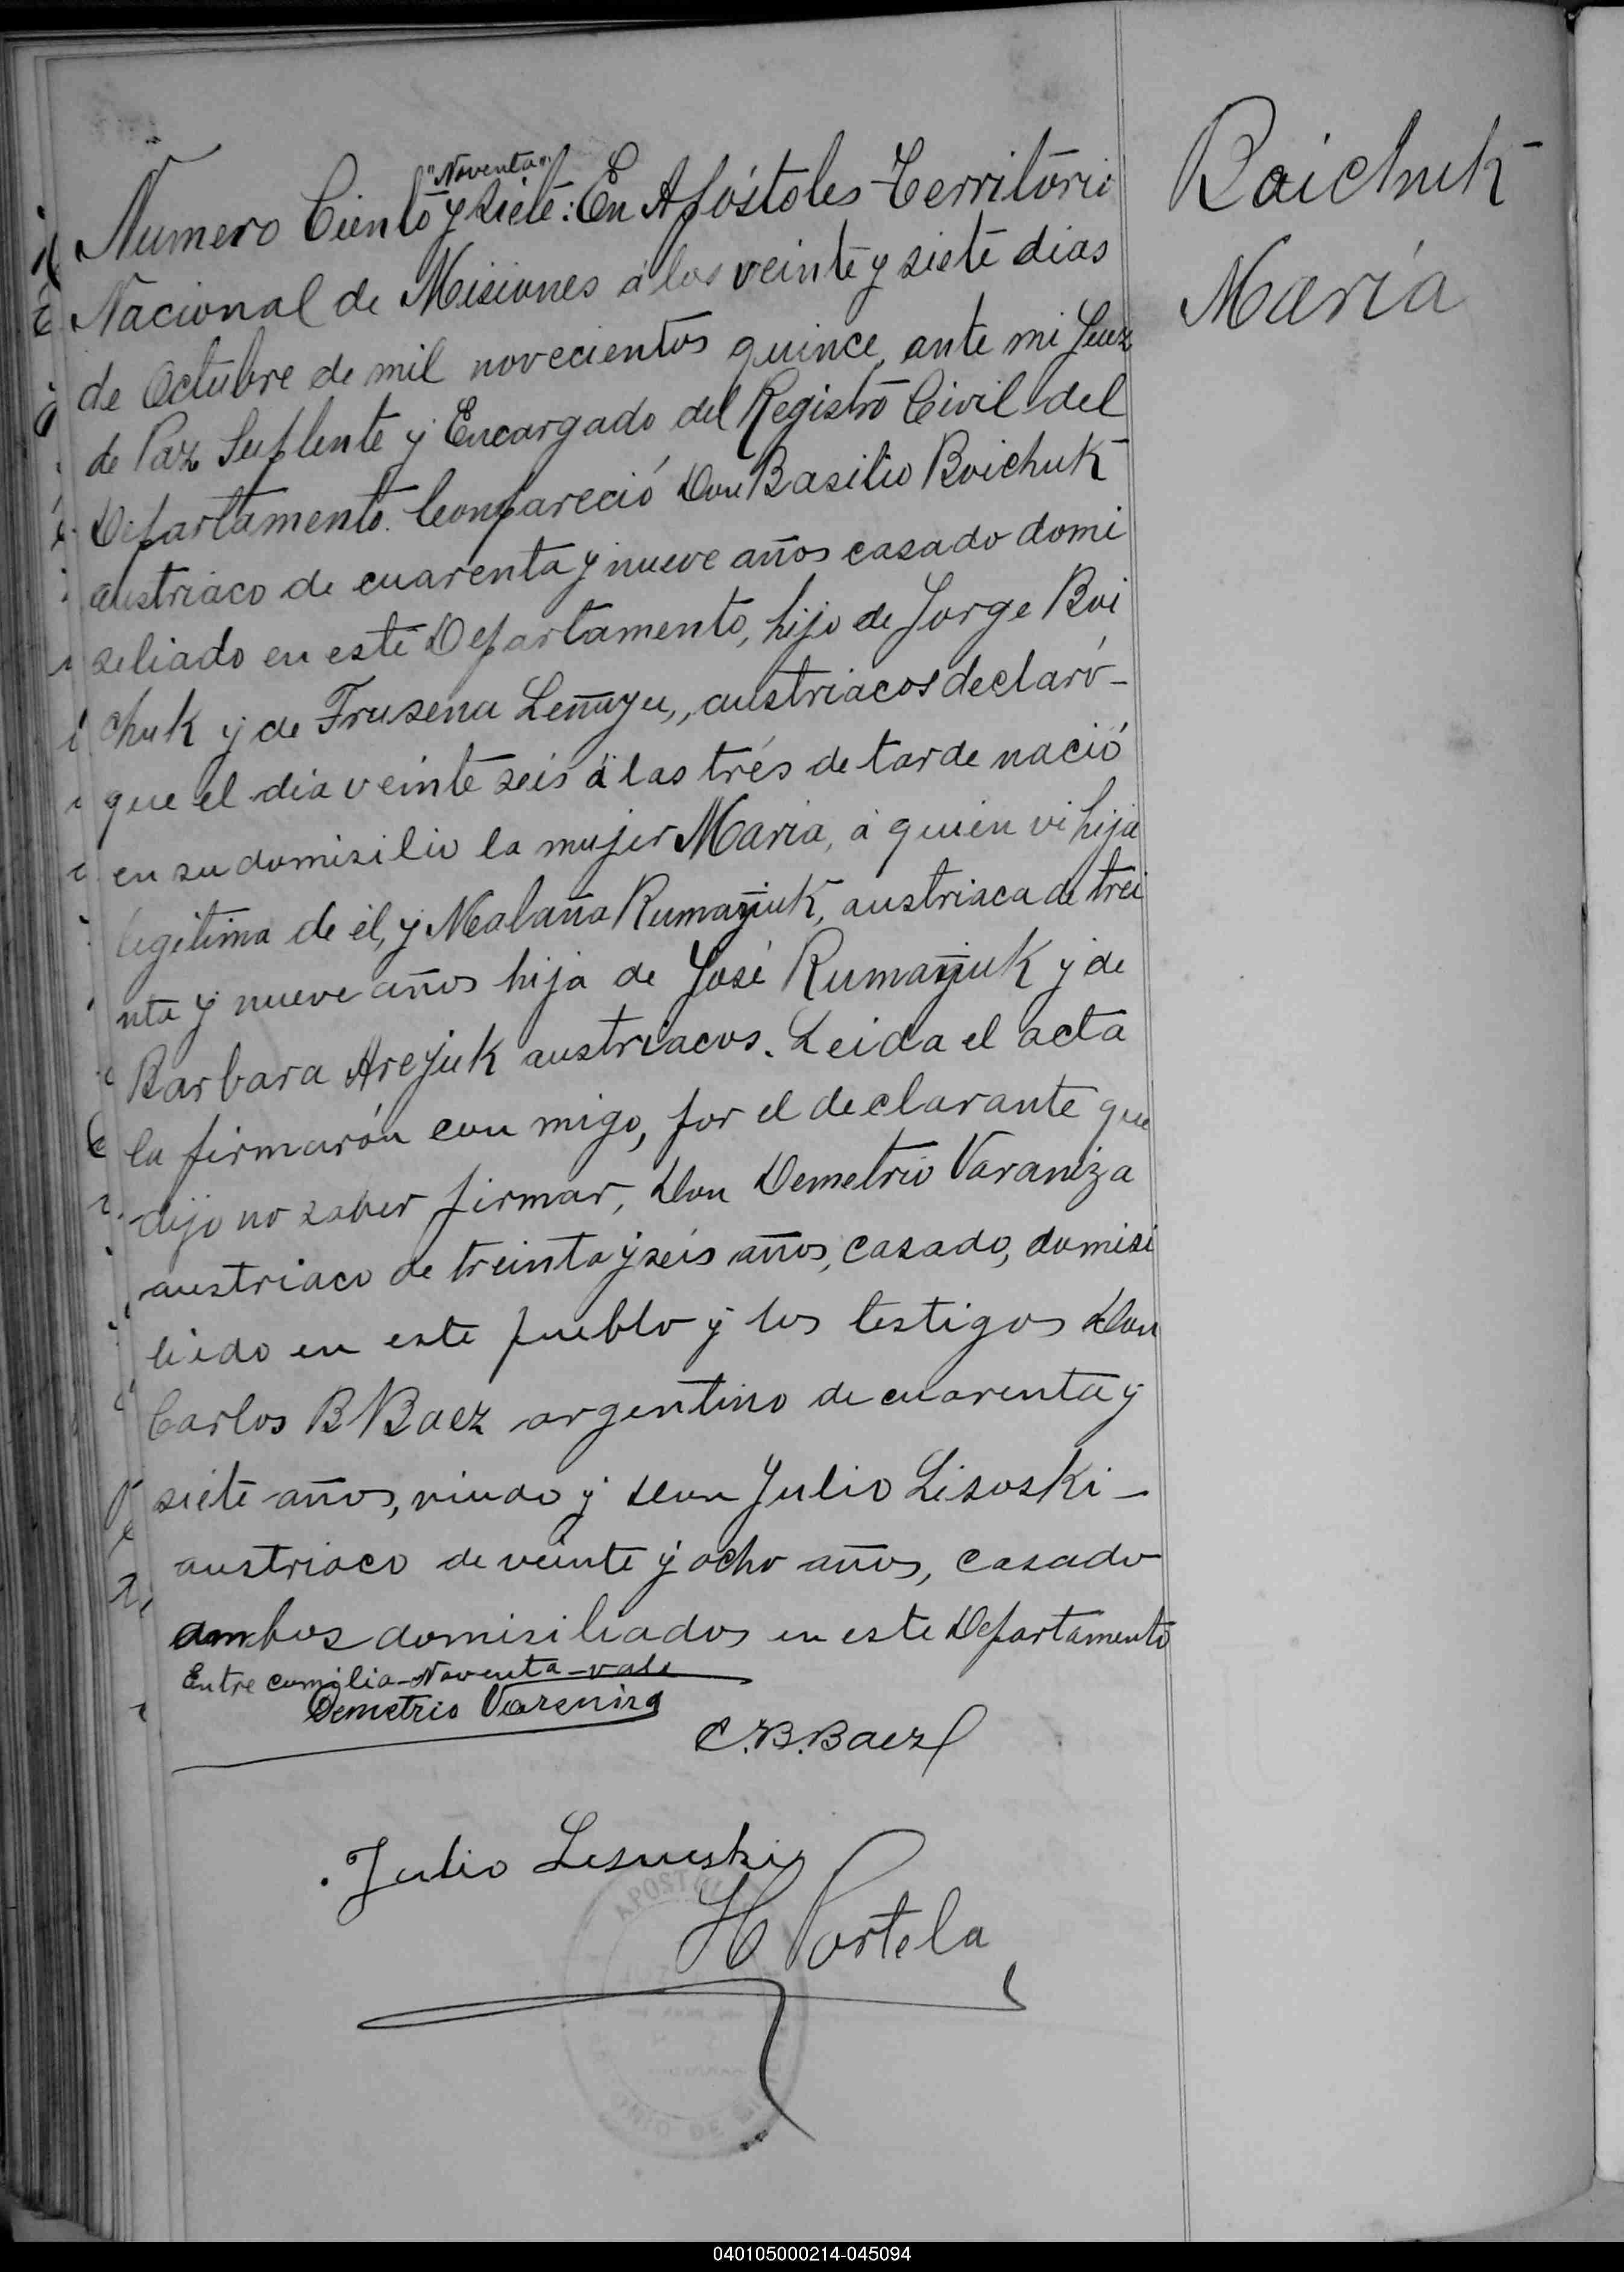 Boichuk
María
"Noventa"
Numero Ciento y siete: En Apóstoles Territorio
Nacional de Misiones á los veinte y siete dias
de Octubre de mil novecientos quince, ante mi Juez
de Paz Suplente y Encargado del Registro Civil del
Departamento. Compareció Don Basilio Boichuk
austriaco de cuarenta y nueve años casado domi
seliado en este Departamento, hijo de Jorge Boi
chuk y de Frusena Leñuyu, austriacos declaró-
que el dia veinte seis á las trés de tarde nació
en su domisilio la mujer Maria, á quien vi hija
legitima de él, y Malaña Rumañiuk, austriaca de trei
nta y nueve años hija de José Rumañiuk y de
Barbara Arejuk austriacos. Leida el acta
la firmarón con migo, por el declarante que
dijo no saber firmar, Don Demetrio Varaniza
austriaco de treinta y seis años, casado, domisi
liedo en este pueblo y los testigos Don
Carlos B Baez argentino de cuarenta y
siete años, viudo y Don Julio Lisoski-
austriaco de veinte y ocho años, casado
ambos domisiliados en este Departamento
Entre comilia-Noventa-vale
Demetrio Vareniza
C.B.Baez
Julio Lisueski
H Portela
040105000214-045094